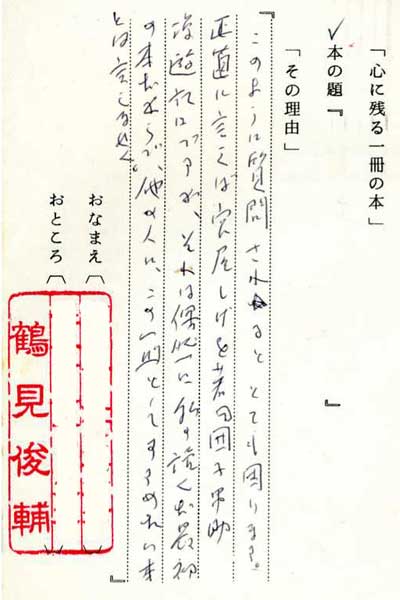 「心に残る一冊の本」
✓本の題『 』
「その理由」
『このように質問されると とても困ります。
正直に言えば宮尾しげを著 団子串助
漫遊記ですが、それは偶然に私の読んだ最初
の本だからで、他の人に、この一冊としてすすめたい本
とは言えません。』
おなまえ( )
おところ( )
鶴見俊輔